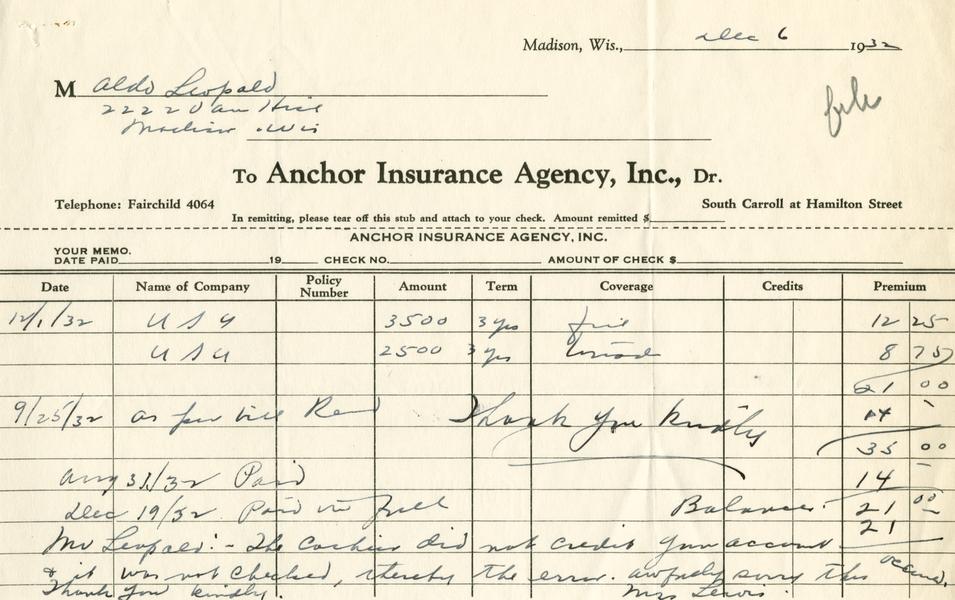 Madison, Wis., Dec 6 1932
M Aldo Leopold
2222 Van Hise
Madison Wis
file
To Anchor Insurance Agency, Inc., Dr.
Telephone: Fairchild 4064
South Carroll at Hamilton Street
In remitting, please tear off this stub and attach to your check. Amount remitted $
ANCHOR INSURANCE AGENCY, INC.
YOUR MEMO.
DATE PAID 19 CHECK NO. AMOUNT OF CHECK $
Date Name of Company Policy Number Amount Term Coverage Credits Premium
12/1/32 U S G 3500 3 yrs fire 12 25
U S G 2500 3 yrs 8 75
21 00
9/25/32 as per bill Rend Thank you kindly 14 -
35 00
Aug 31/32 Paid 14 -
Dec 19/32 Paid in full Balance. 21 00
21 -
Mr Leopold:- The cashier did not credit your account
& it was not checked, thereby the error. awfully sorry this occured.
Thank you kindly. Mrs Lewis.